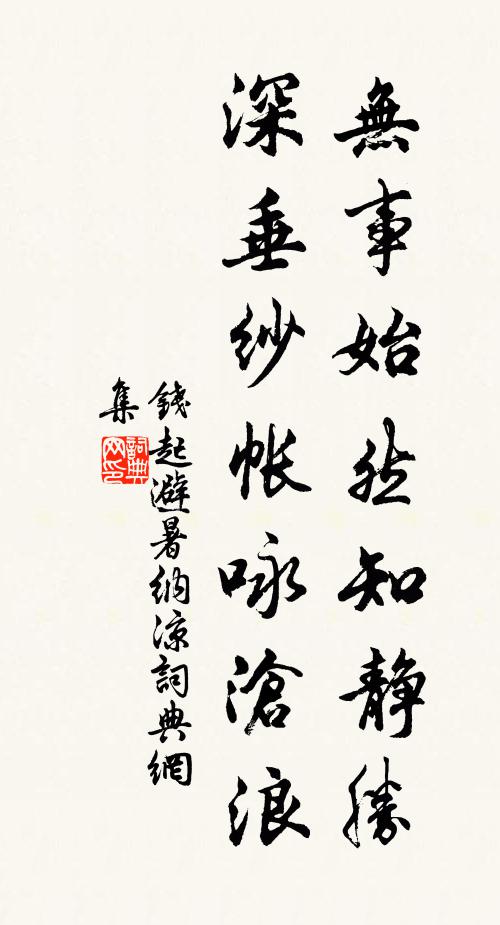 無事始然知静勝
深垂紗帳咏滄浪
錢起避暑納凉詞典網
集
詞典
网印